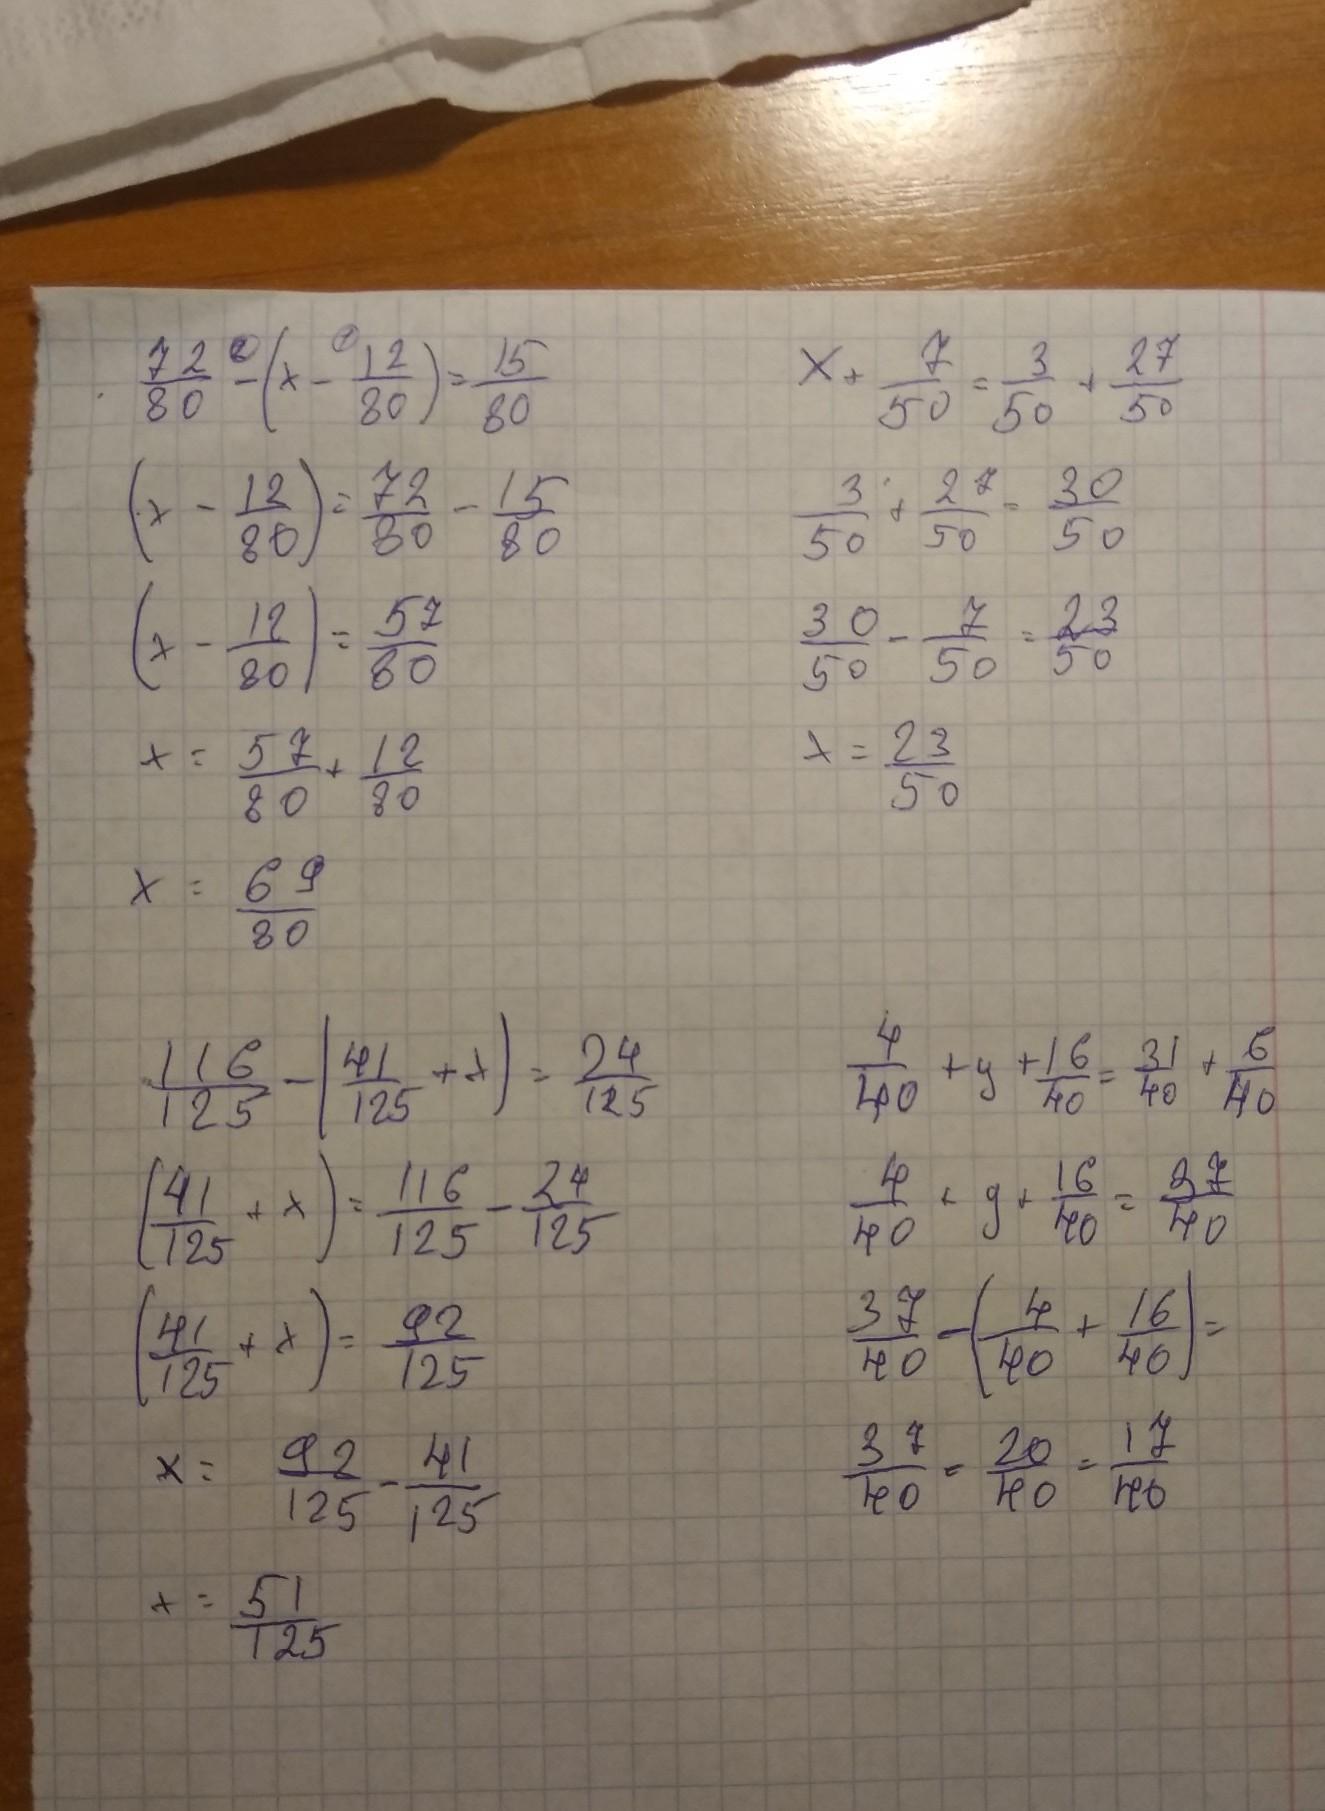 72/80 - (x - 12/80) = 15/80
(x - 12/80) = 72/80 - 15/80
(x - 12/80) = 57/80
x = 57/80 + 12/80
x = 69/80
x + 7/50 = 3/50 + 27/50
3/50 + 27/50 = 30/50
30/50 - 7/50 = 23/50
x = 23/50
116/125 - (41/125 + x) = 24/125
(41/125 + x) = 116/125 - 24/125
(41/125 + x) = 92/125
x = 92/125 - 41/125
x = 51/125
4/40 + y + 16/40 = 31/40 + 6/40
4/40 + y + 16/40 = 37/40
37/40 - (4/40 + 16/40) =
37/40 - 20/40 = 17/40